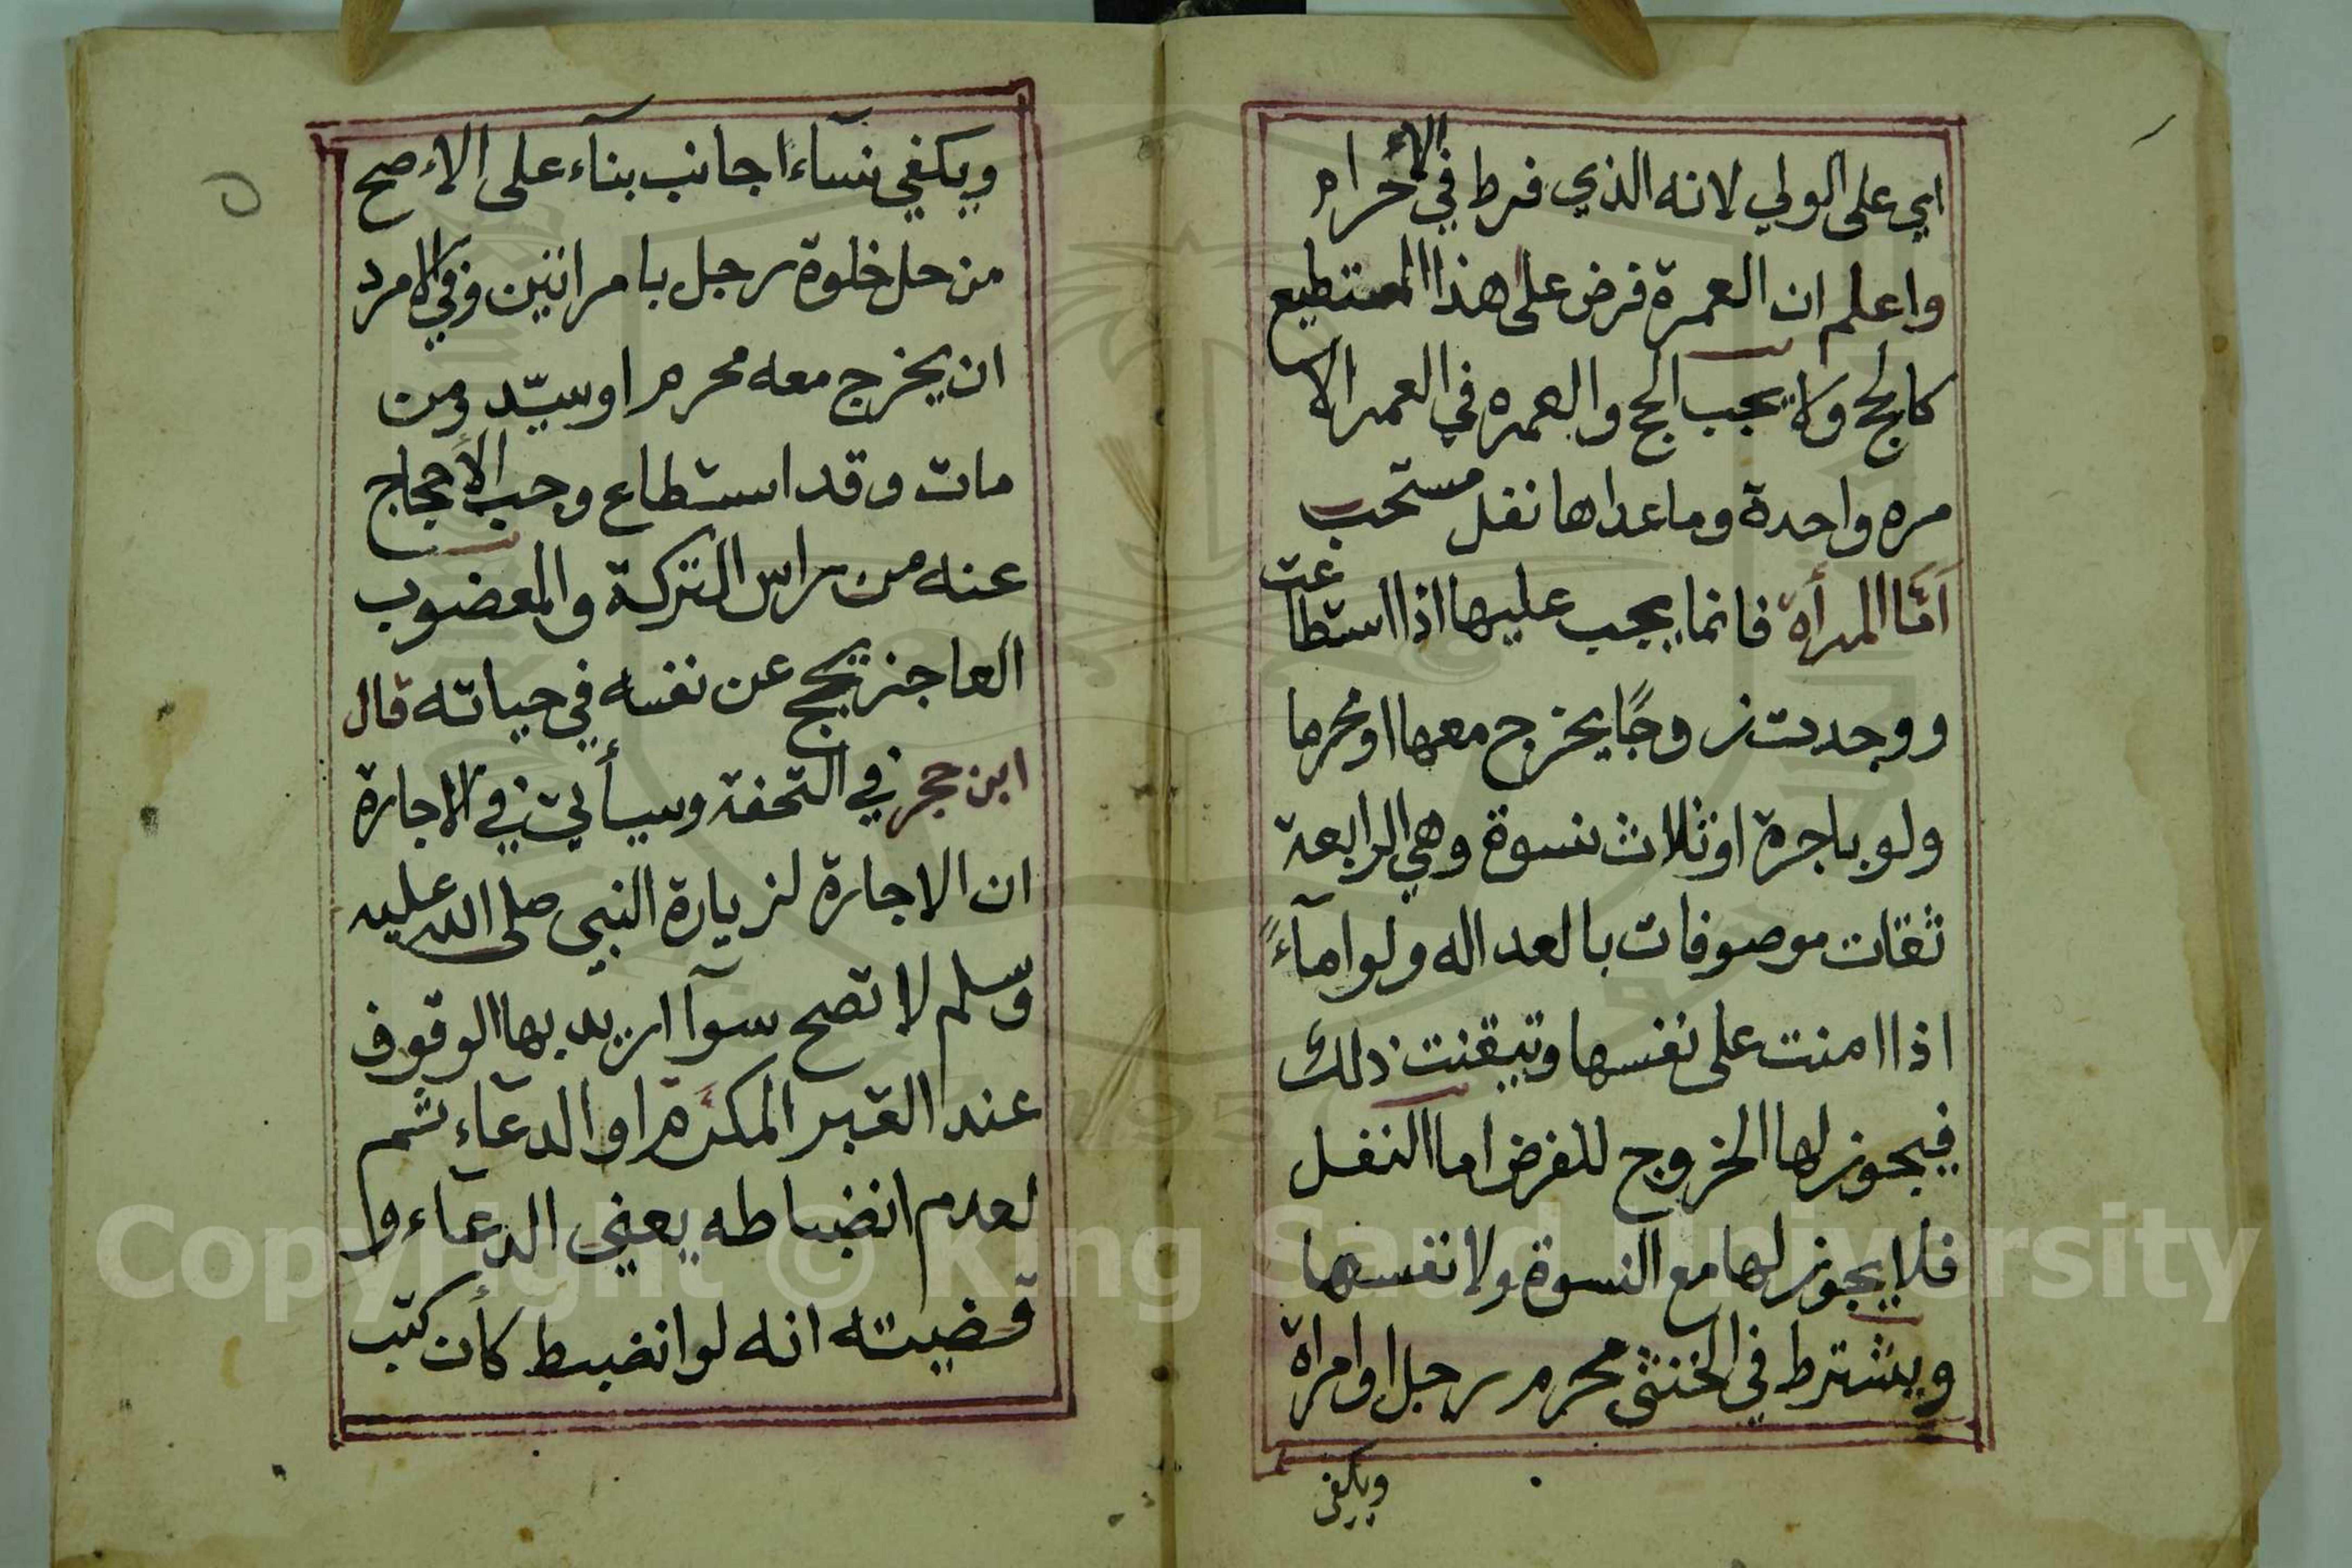 اي على الولي لانه الذي فرط في الأحرام
واعلم ان العمرة فرض على هذا المستطيع
كالحج ولا يجب الحج والعمره في العمر الا
مره واحدة وما عداها نفل مستحب
اَمَّا المرأة فانما يجب عليها اذا استطاعت
ووجدت زوجًا يخرج معها او محرما
ولو باجرة او ثلاث نسوة وهي الرابعة
ثقات موصوفات بالعداله ولو امآءً
اذا امنت على نفسها وتيقنت ذلك
فيجوز لها الخروج للفرض اما النفل
فلا يجوز لها مع النسوة ولا نفسها
ويشترط في الخنثى محرم رجل او امراة
ويكفي
ويكفي نسآء اجانب بنآء على الاءصح
من حل خلوة رجل بامراتين وفي الامرد
ان يخرج معه محرم او سيّد ومن
مات وقد استطاع وجب الأحجاج
عنه من راس التركة والمعضوب
العاجز يحج عن نفسه في حياته قال
ابن حجر في التحفة وسيأتي في الاجارة
ان الاجارة لزيارة النبي صلى الله عليه
وسلم لا تصح سوآ اريد بها الوقوف
عند القبر المكرَّم او الدعآء ثم
لعدم انضباطه يعني الدعآء و
قضيته انه لو انضبط كأن كتب
Copyright © King Saud University